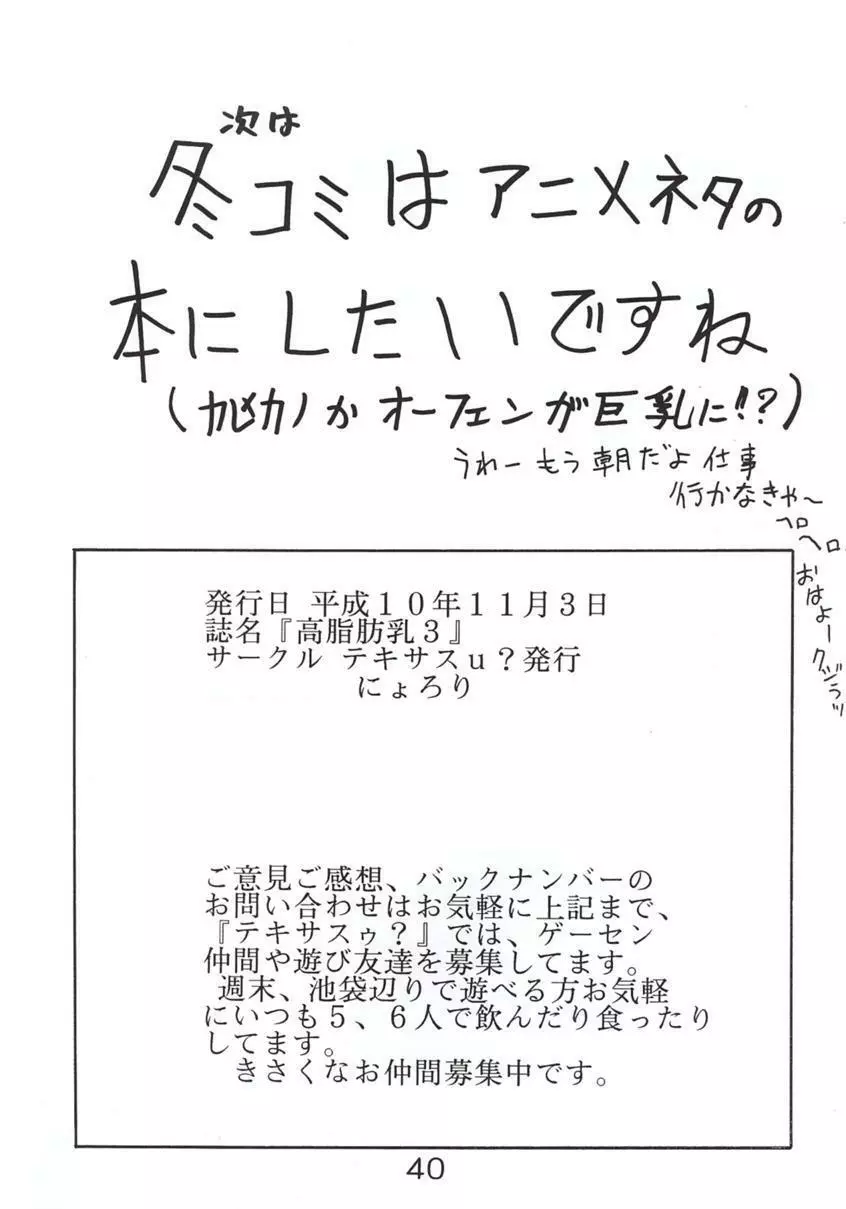 次は
冬コミはアニメネタの
本にしたいですね
か オーフェンが巨乳に!!?)
うわー もう朝だよ 仕事
行かなきゃ〜
ヘロ
ヘロ
おはよー
発行日 平成１０年１１月３日
誌名『高脂肪乳３』
サークル テキサスｕ？発行
にょろり
ご意見ご感想、バックナンバーの
お問い合わせはお気軽に上記まで、
『テキサスゥ？』では、ゲーセン
仲間や遊び友達を募集してます。
週末、池袋辺りで遊べる方お気軽
にいつも５、６人で飲んだり食ったり
してます。
きさくなお仲間募集中です。
40